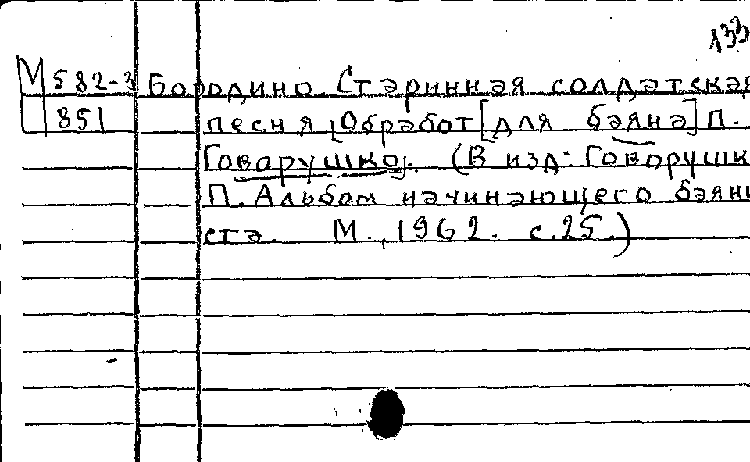 133
М 582-3 Бородино. Старинная солдатская
851 песня [Обработ[для баяна] П.
Говорушко]. (В изд: Говорушк
П. Альбом начинающего баяни
ста. М., 1962. с.25.)